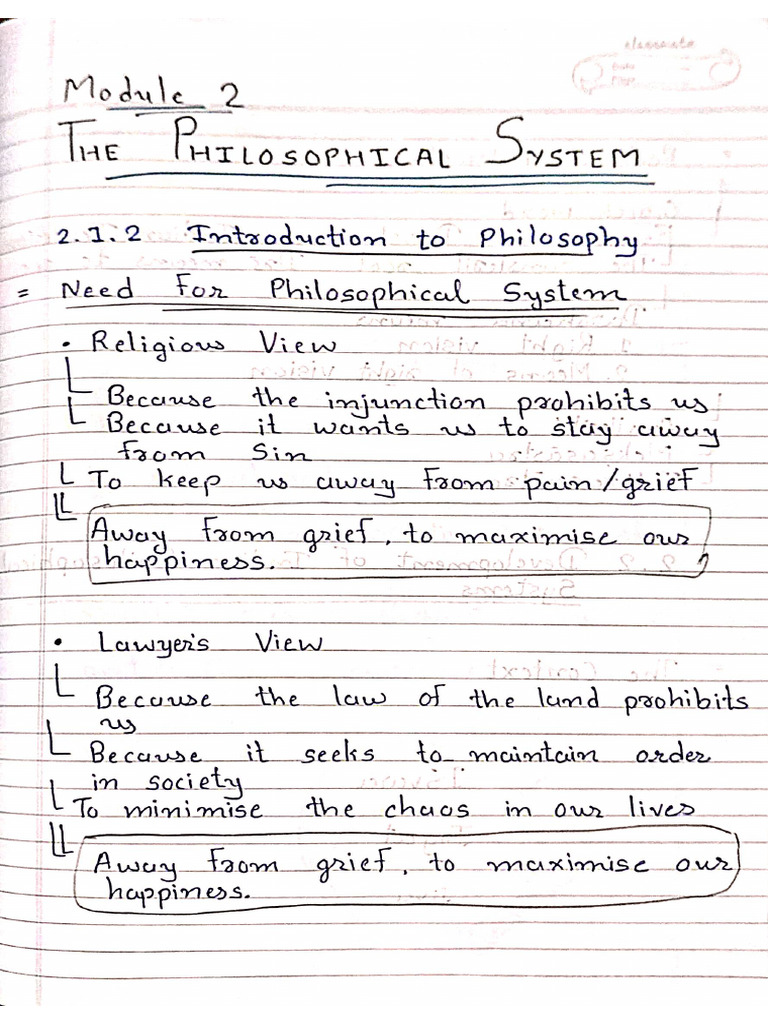 Module 2
THE PHILOSOPHICAL SYSTEM
2.1.2 Introduction to Philosophy
= Need For Philosophical System
• Religious View
Because the injunction prohibits us
Because it wants us to stay away
from Sin
To keep us away from pain/grief
Away from grief, to maximise our
happiness.
• Lawyer's View
Because the law of the land prohibits
us
Because it seeks to maintain order
in society
To minimise the chaos in our lives
Away from grief, to maximise our
happiness.